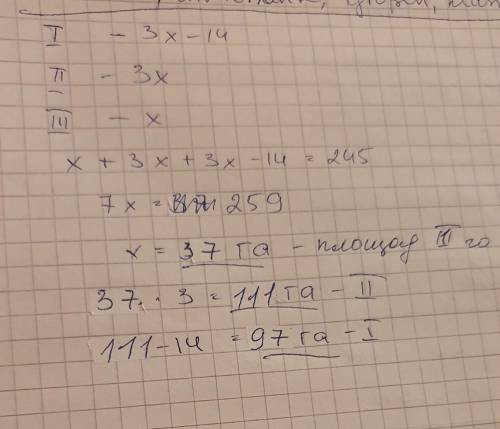 I - 3x - 14
II - 3x
III - x
x + 3x + 3x - 14 = 245
7x = 259
x = 37 га - площад III го
37 · 3 = 111 га - II
111 - 14 = 97 га - I